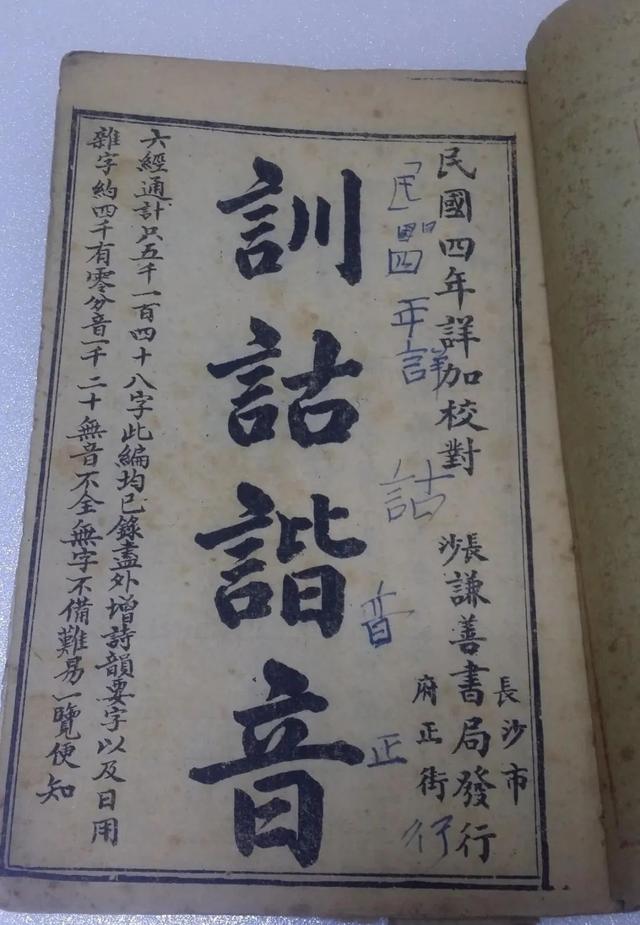 民國四年詳加校對
長沙謙善書局發行
長沙市
府正街
「民」國四年詳
詁
音
正
行
訓詁諧音
六經通計只五千一百四十八字此編均已錄盡外增詩韻要字以及日用
雜字約四千有零分音一千二十無音不全無字不備難易一覽便知